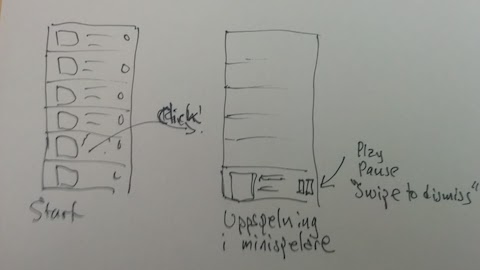 Click!
Start
Play
Pause
"Swipe to dismiss"
Uppspelning
i minispelare